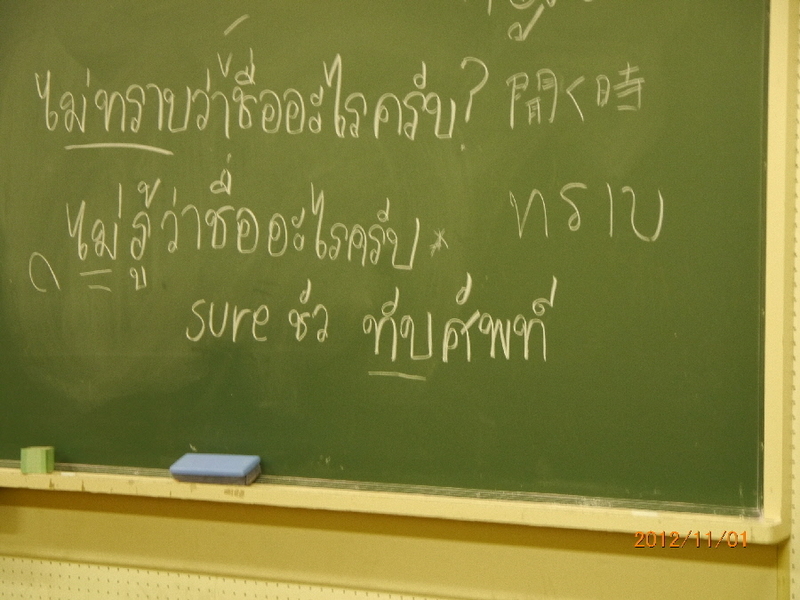 ไม่ทราบว่าชื่ออะไรครับ? 聞く時
ไม่รู้ว่าชื่ออะไรครับ* ทราบ
sure ชัว ทับศัพท์
2012/11/01